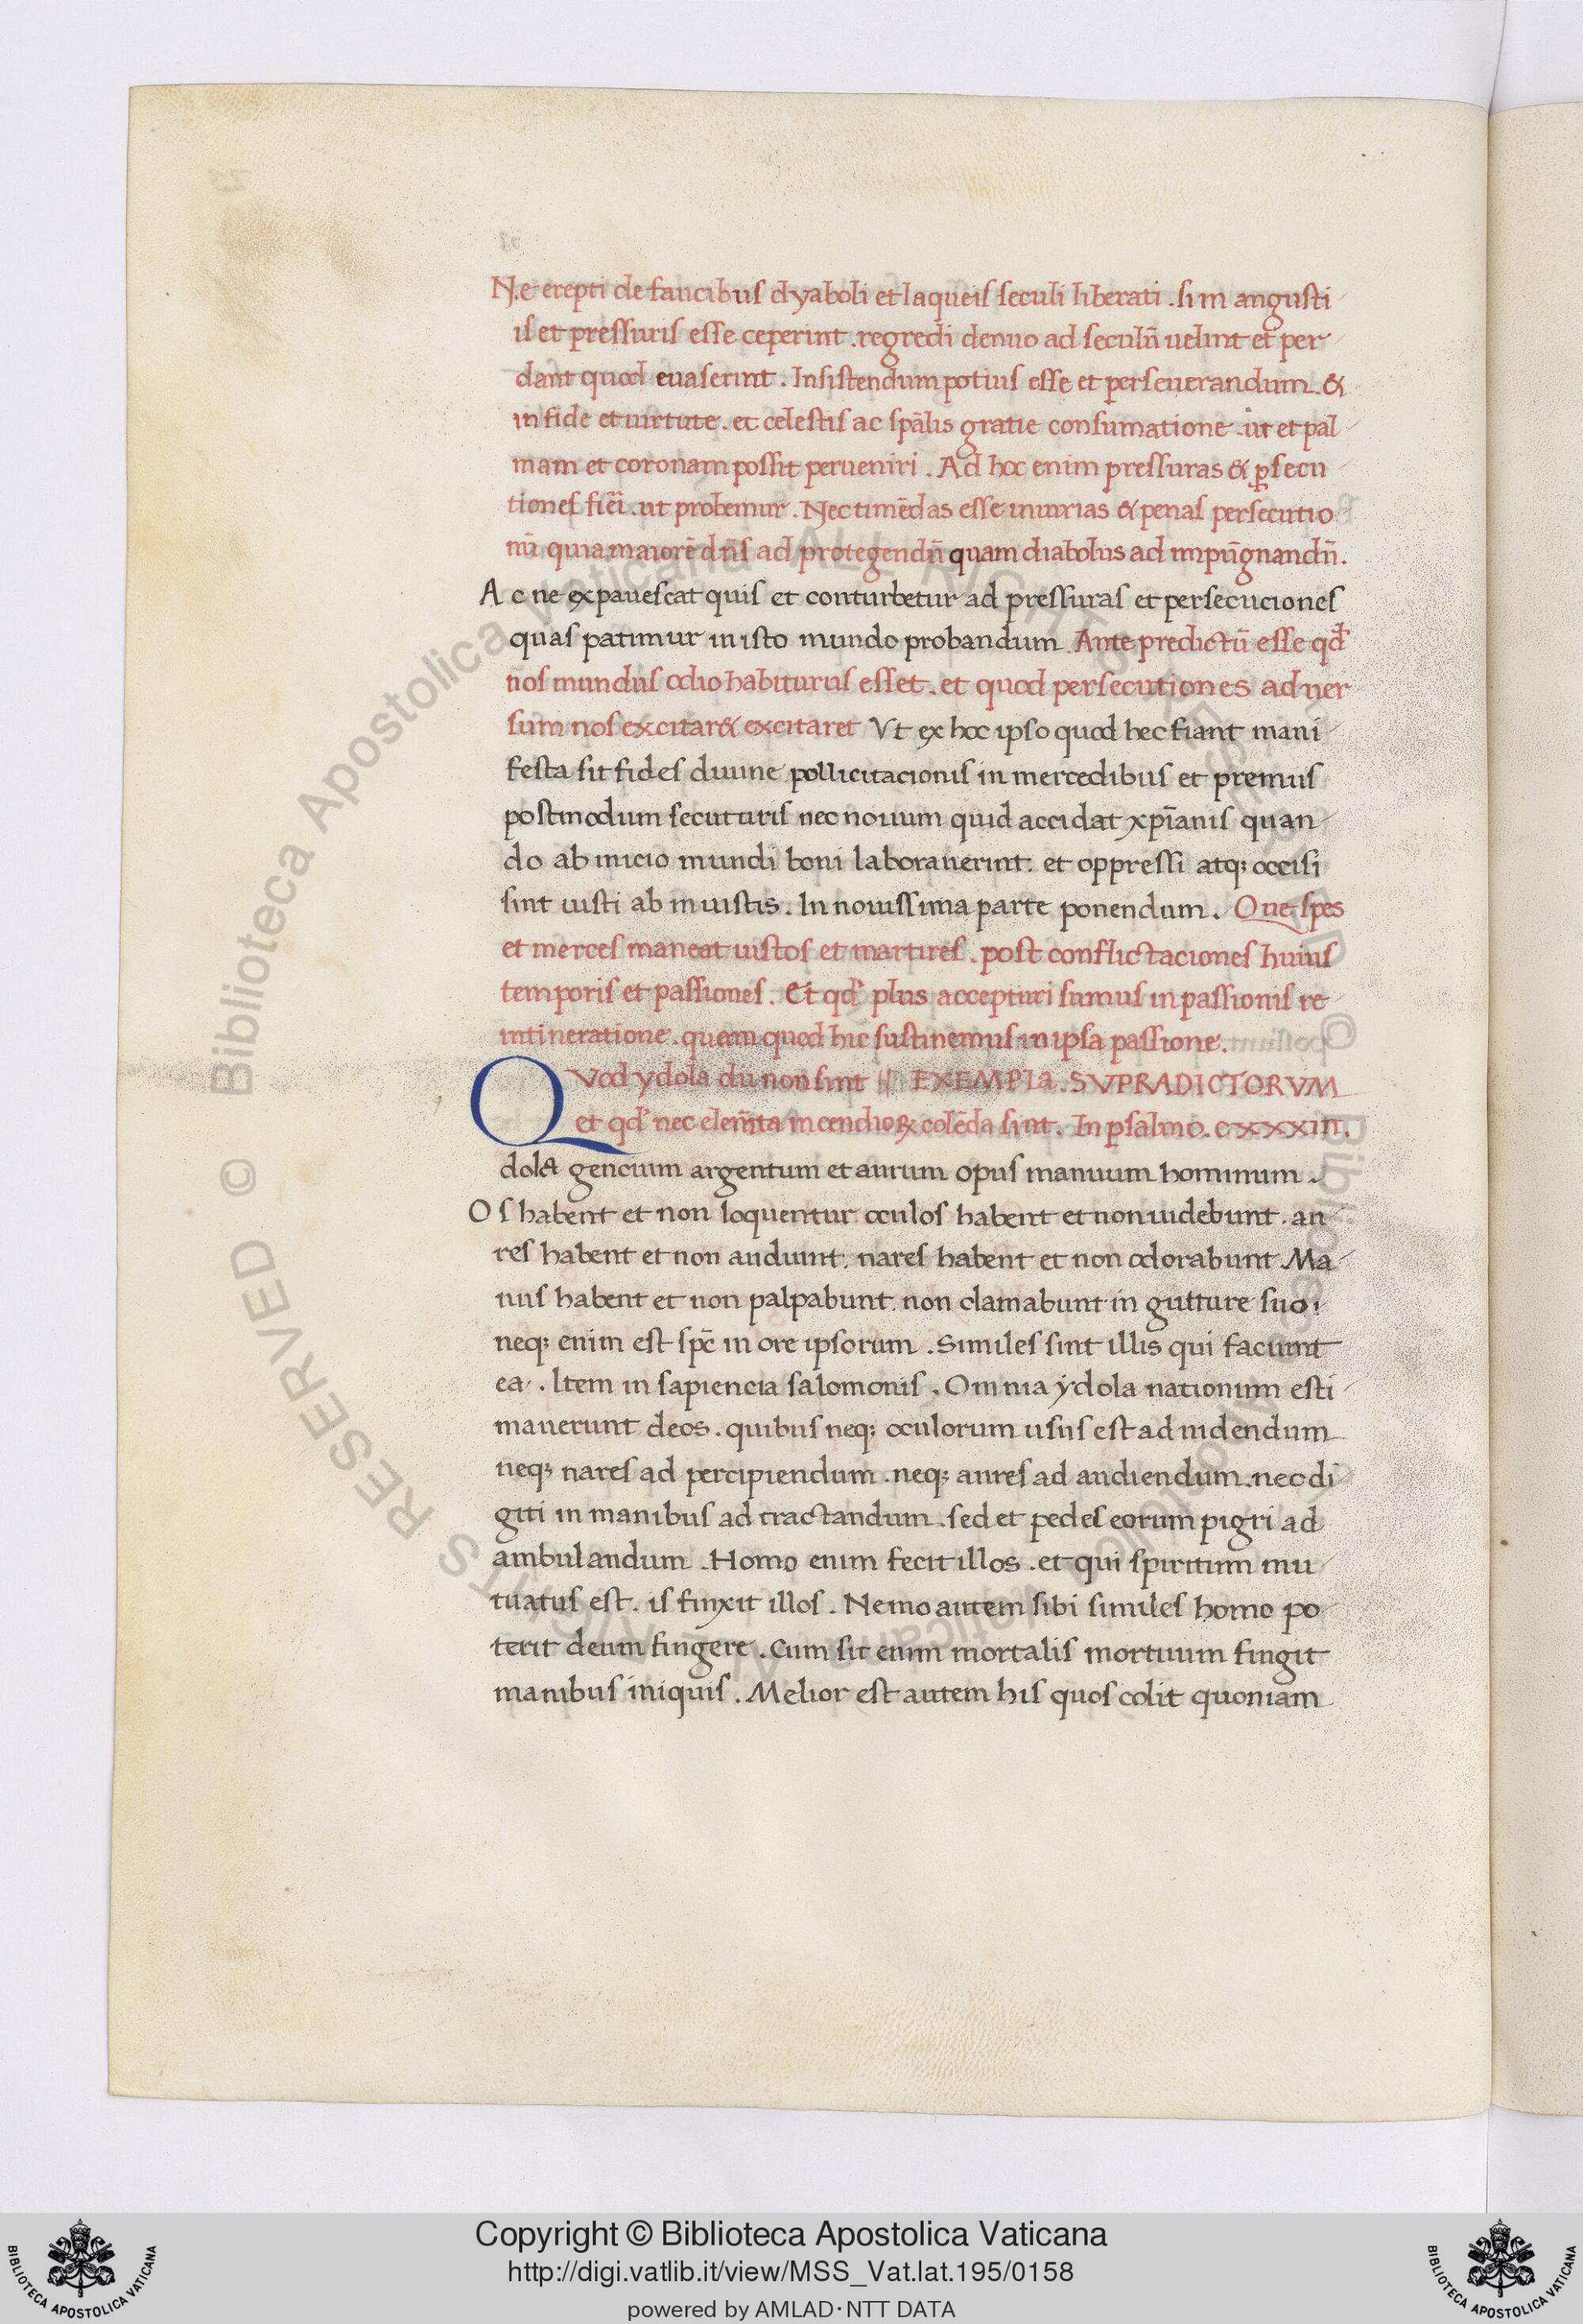 Ne erepti de faucibus dyaboli et laqueis seculi liberati . si in angusti
is et pressuris esse ceperint . regredi denuo ad seculū uelint et per
dant quod euaserint . Insistendum potius esse et perseuerandum . &
in fide et uirtute . et celestis ac spālis gratie consumatione . ut et pal
mam et coronam possit perueniri . Ad hoc enim pressuras & ꝑsecu
tiones fiēi . ut probemur . Nec timēdas esse iniurias & penas persecutio
nū quia maiorē dn̄s ad protegendū quam diabolus ad impūgnandū .
Ac ne expauescat quis et conturbetur ad pressuras et persecuciones
quas patimur in isto mundo probandum . Ante predictū esse qđ
nos mundus odio habiturus esset . et quod persecutiones aduer
sum nos excitar& excitaret Vt ex hoc ipso quod hec fiant mani
festa sit fides diuine pollicitacionis in mercedibus et premiis
postmodum secuturis nec nouum quid accidat xp̄ianis quan
do ab inicio mundi boni laborauerint . et oppressi atqꝫ occisi
sint iusti ab iniustis . In nouissima parte ponendum . Que spes
et merces maneat iustos et martires . post conflictaciones huius
temporis et passiones . Et qđ plus accepturi sumus in passionis re
intineratione . quam quod hic sustinemus in ipsa passione .
Quod ydola dii non sint EXEMPLa . SVPRADICTORVM
et qđ nec elem̄ta incendioꝝ colēda sint . In psalmo . cxxxiii .
dola gencium argentum et aurum opus manuum hominum .
Os habent et non loquentur . oculos habent et non uidebunt . au
res habent et non audiunt . nares habent et non odorabunt . Ma
nus habent et non palpabunt . non clamabunt in gutture suo ,
neqꝫ enim est spc̄ in ore ipsorum . Similes sint illis qui faciunt
ea . Item in sapiencia salomonis . Omnia ydola nationum esti
mauerunt deos . quibus neqꝫ oculorum usus est ad uidendum
neqꝫ nares ad percipiendum . neqꝫ aures ad audiendum . nec di
giti in manibus ad tractandum . sed et pedes eorum pigri ad
ambulandum . Homo enim fecit illos . et qui spiritum mu
tuatus est . is finxit illos . Nemo autem sibi similes homo po
terit deum fingere . Cum sit enim mortalis mortuum fingit
manibus iniquis . Melior est autem his quos colit quoniam
Copyright © Biblioteca Apostolica Vaticana
http://digi.vatlib.it/view/MSS_Vat.lat.195/0158
powered by AMLAD·NTT DATA
BIBLIOTECA APOSTOLICA VATICANA
BIBLIOTECA APOSTOLICA VATICANA